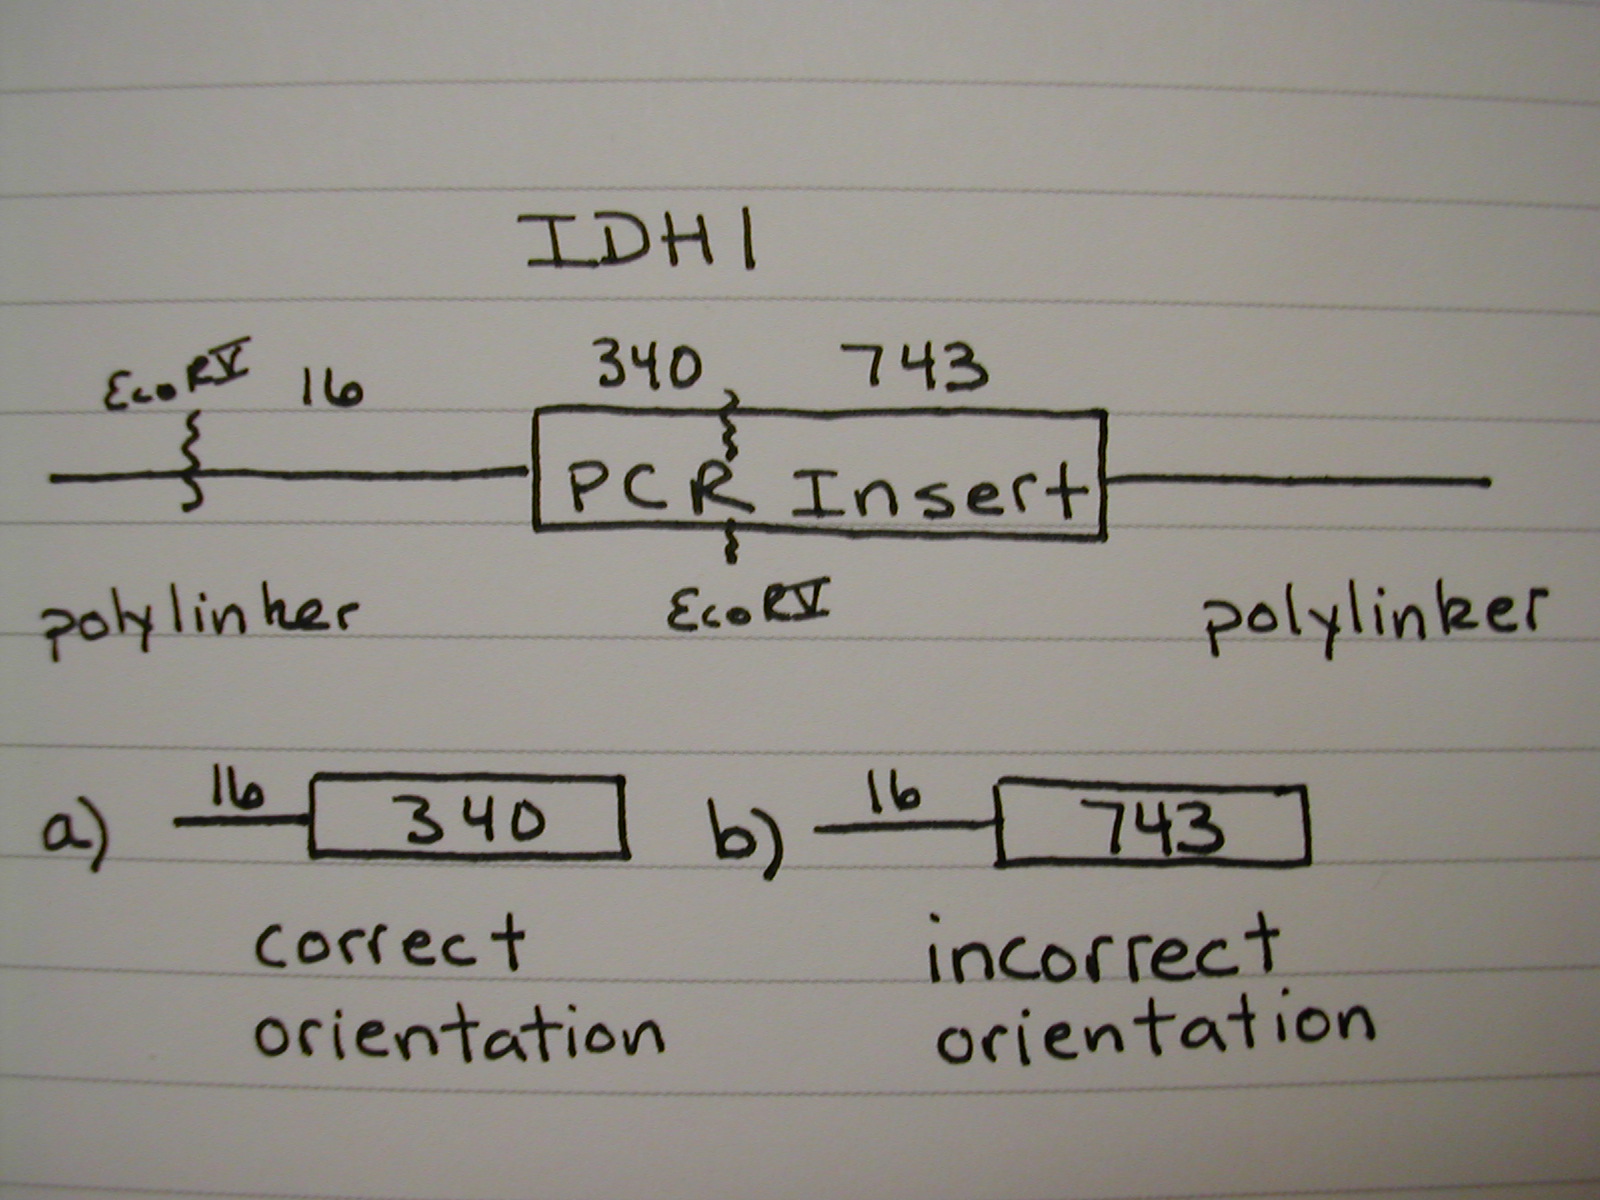 IDH1
EcoRV 16 340 743
PCR Insert
polylinker EcoRV polylinker
a) 16 340 b) 16 743
correct incorrect
orientation orientation